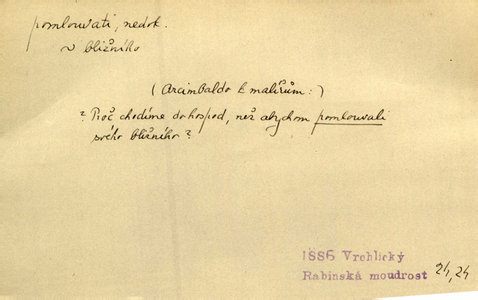 pomlouvati, nedok.
~ bližního
(Arcimbaldo k malířům:)
? Proč chodíme do hospod, než abychom pomlouvali
svého bližního?
1886 Vrchlický
Rabínská moudrost 24,24